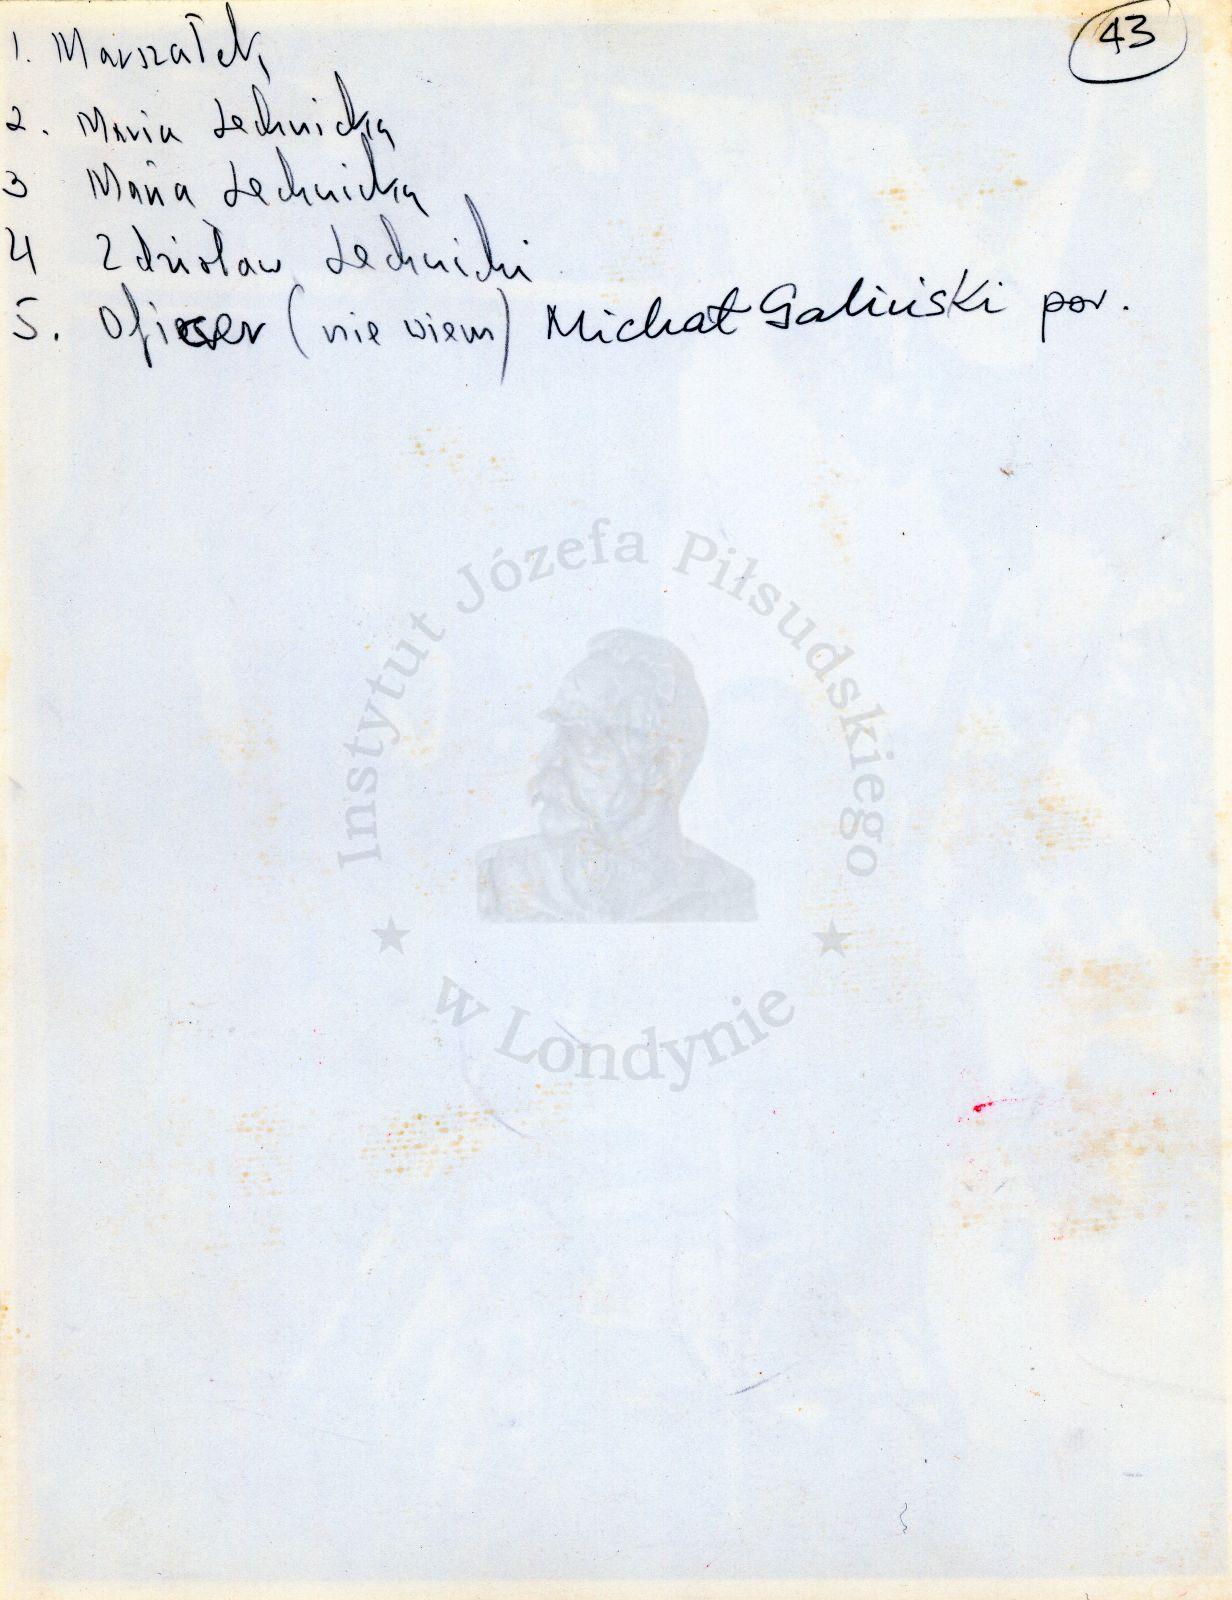 43
1. Marszałek,
2. Maria Lechnicka
3 Maria Lechnicka
4 Zdzisław Lechnicki
5. Oficer (nie wiem) Michał Galiński por.
Instytut Józefa Piłsudskiego
w Londynie